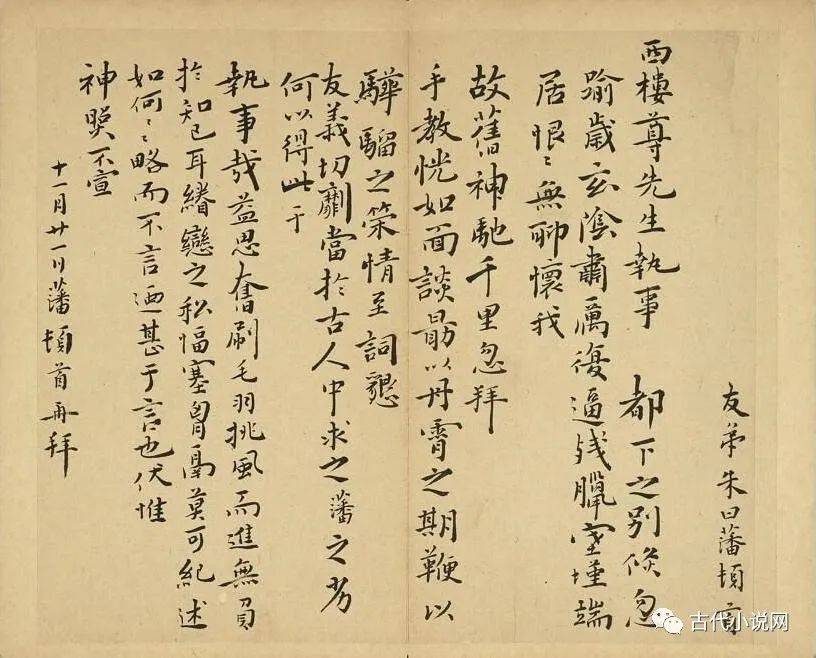 友弟朱曰藩頓首
西樓尊先生執事 都下之別倏忽
踰歲玄陰肅厲復逼殘臘室墐端
居恨〻無聊懷我
故舊神馳千里忽拜
手教恍如面談勗以丹霄之期鞭以
驊騮之策情至詞懇
友義切劘當於古人中求之藩之劣
何以得此于
執事哉益思奮刷毛羽挑風而進無負
於知己耳綣戀之私愊塞胷鬲莫可紀述
如何〻略而不言迺甚于言也伏惟
神不宣
十一月廿一日藩頓首再拜
古代小说网